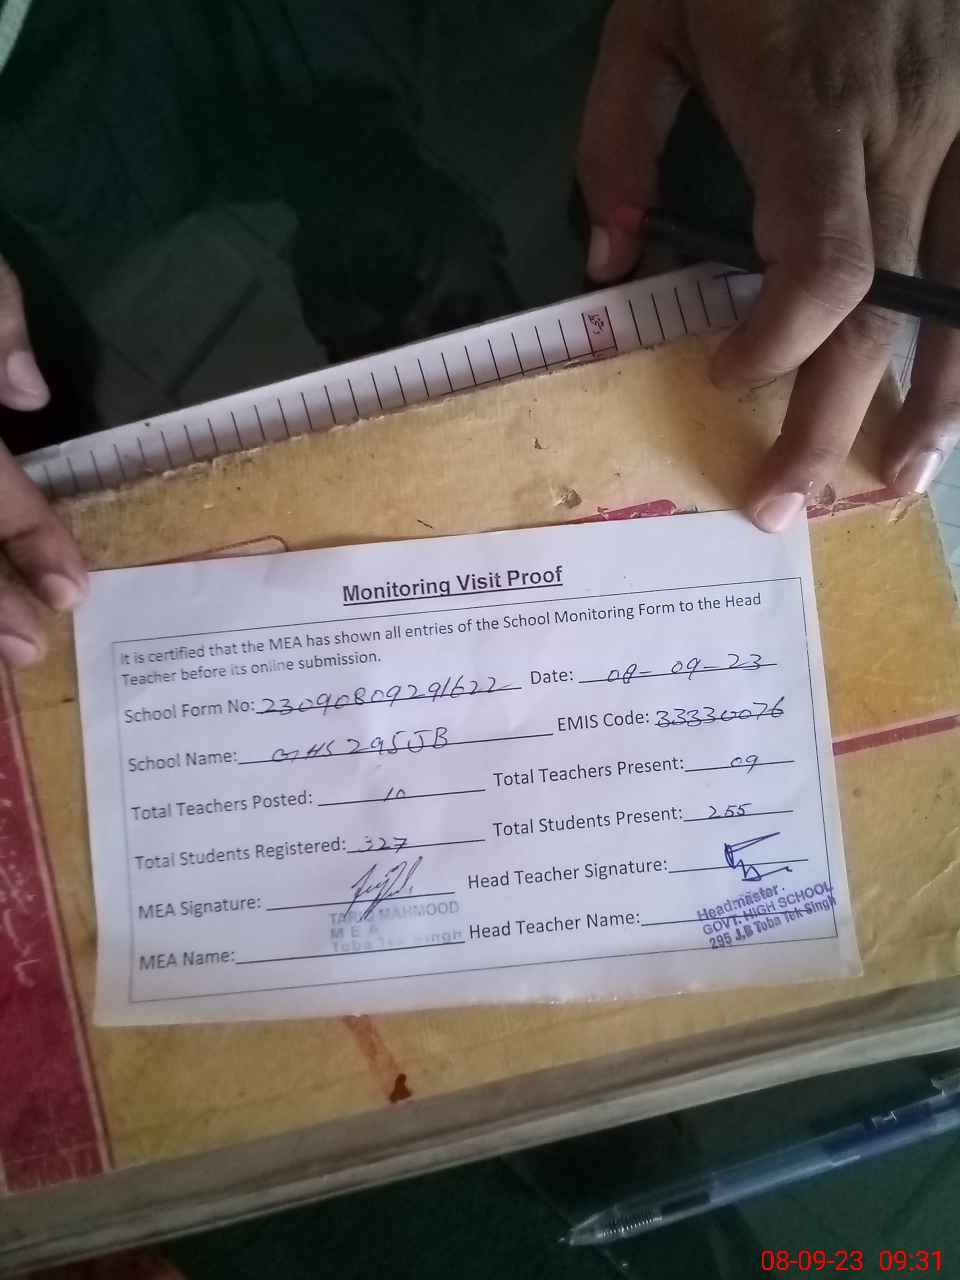 Monitoring Visit Proof
It is certified that the MEA has shown all entries of the School Monitoring Form to the Head
Teacher before its online submission.
School Form No: 23090809291622 Date: 08-09-23
School Name: GHS 295JB EMIS Code: 33330076
Total Teachers Posted: 10 Total Teachers Present: 09
Total Students Registered: 327 Total Students Present: 255
MEA Signature: Head Teacher Signature:
TARIQ MAHMOOD
M E A
Toba Tek Singh
MEA Name: Head Teacher Name:
Headmaster
GOVT. HIGH SCHOOL
295 J.B Toba Tek Singh
08-09-23 09:31